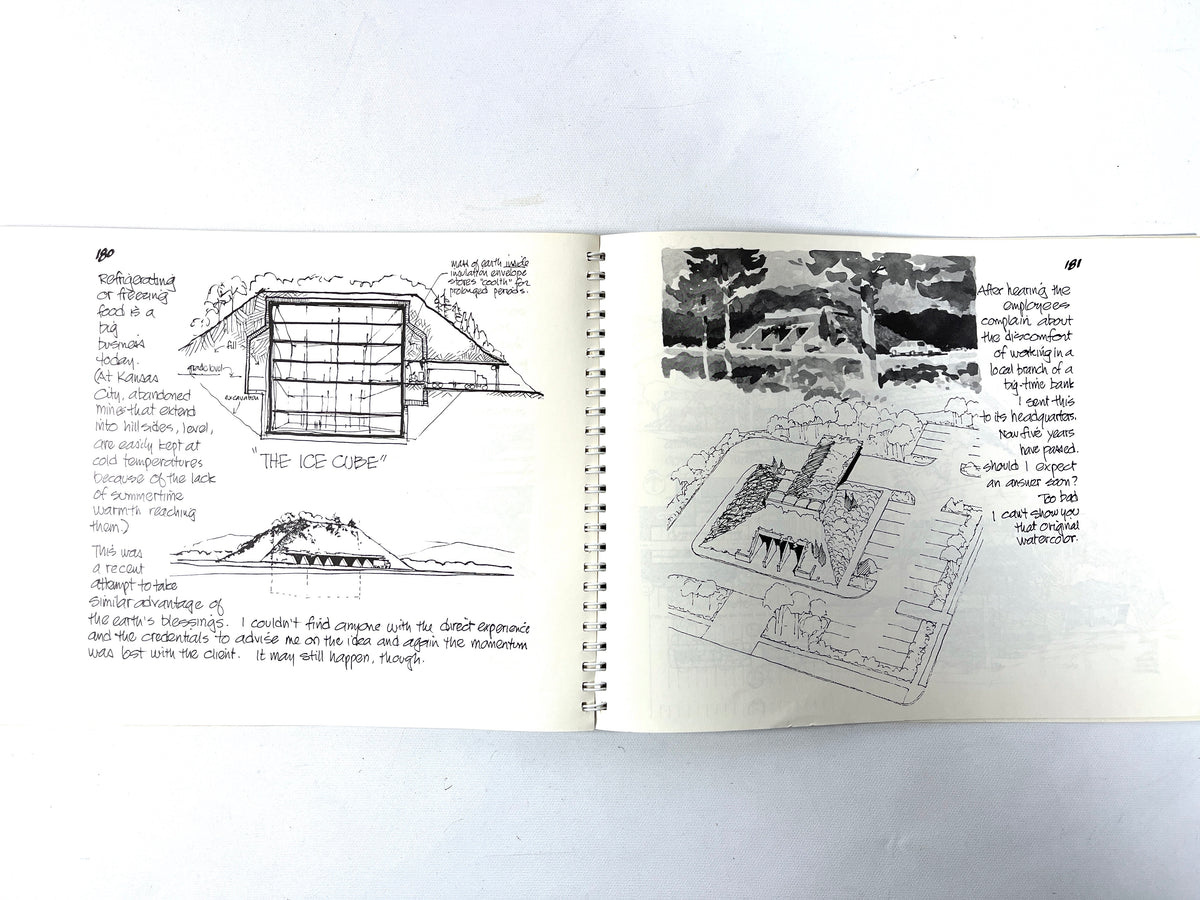 180
Refrigerating
or freezing
food is a
big
business
today.
(At Kansas
City, abandoned
mines that extend
into hillsides, level,
are easily kept at
cold temperatures
because of the lack
of summertime
warmth reaching
them.)
mass of earth inside
insulation envelope
stores "coolth" for
prolonged periods.
fill
grade level
excavation
"THE ICE CUBE"
This was
a recent
attempt to take
similar advantage of
the earth's blessings. I couldn't find anyone with the direct experience
and the credentials to advise me on the idea and again the momentum
was lost with the client. It may still happen, though.
181
After hearing the
employees
complain about
the discomfort
of working in a
local branch of a
big-time bank
I sent this
to its headquarters.
Now five years
have passed.
should I expect
an answer soon?
Too bad
I can't show you
that original
watercolor.